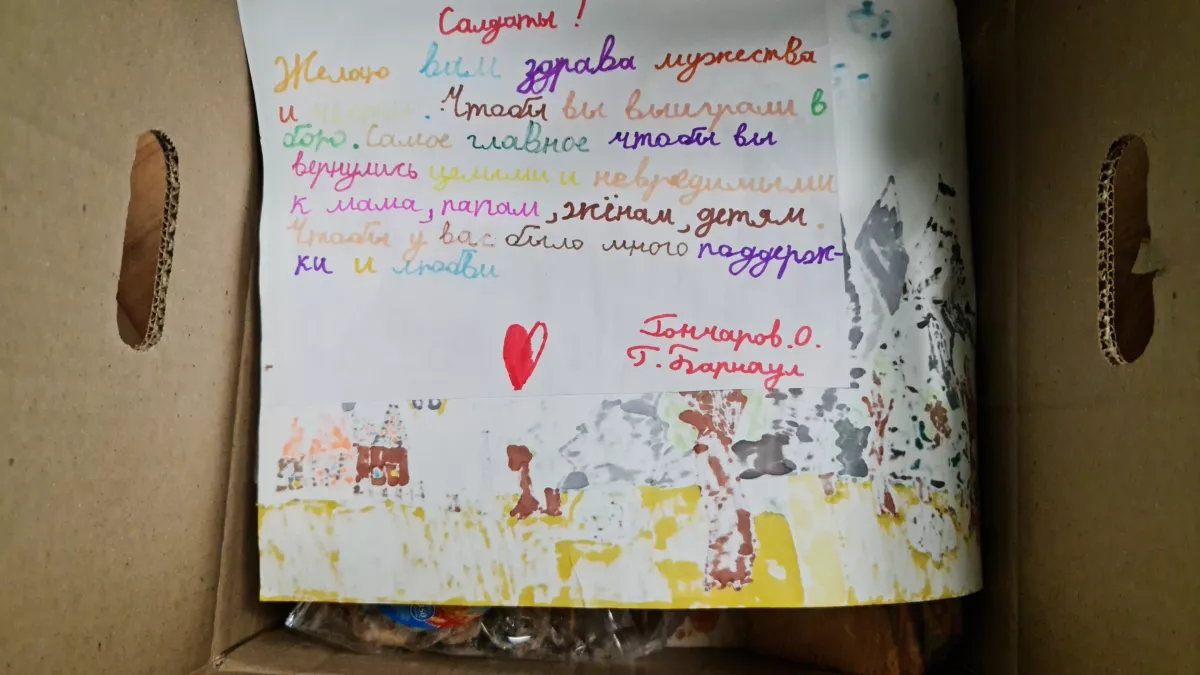 Салдаты!
Желаю вам здрава мужества
и . Чтобы вы выиграли в
бою. Самое главное чтобы вы
вернулись целыми и невредимыми
к мама, папам, жёнам, детям.
Чтобы у вас было много поддерж-
ки и любви
Гончаров.О.
Г. Барнаул